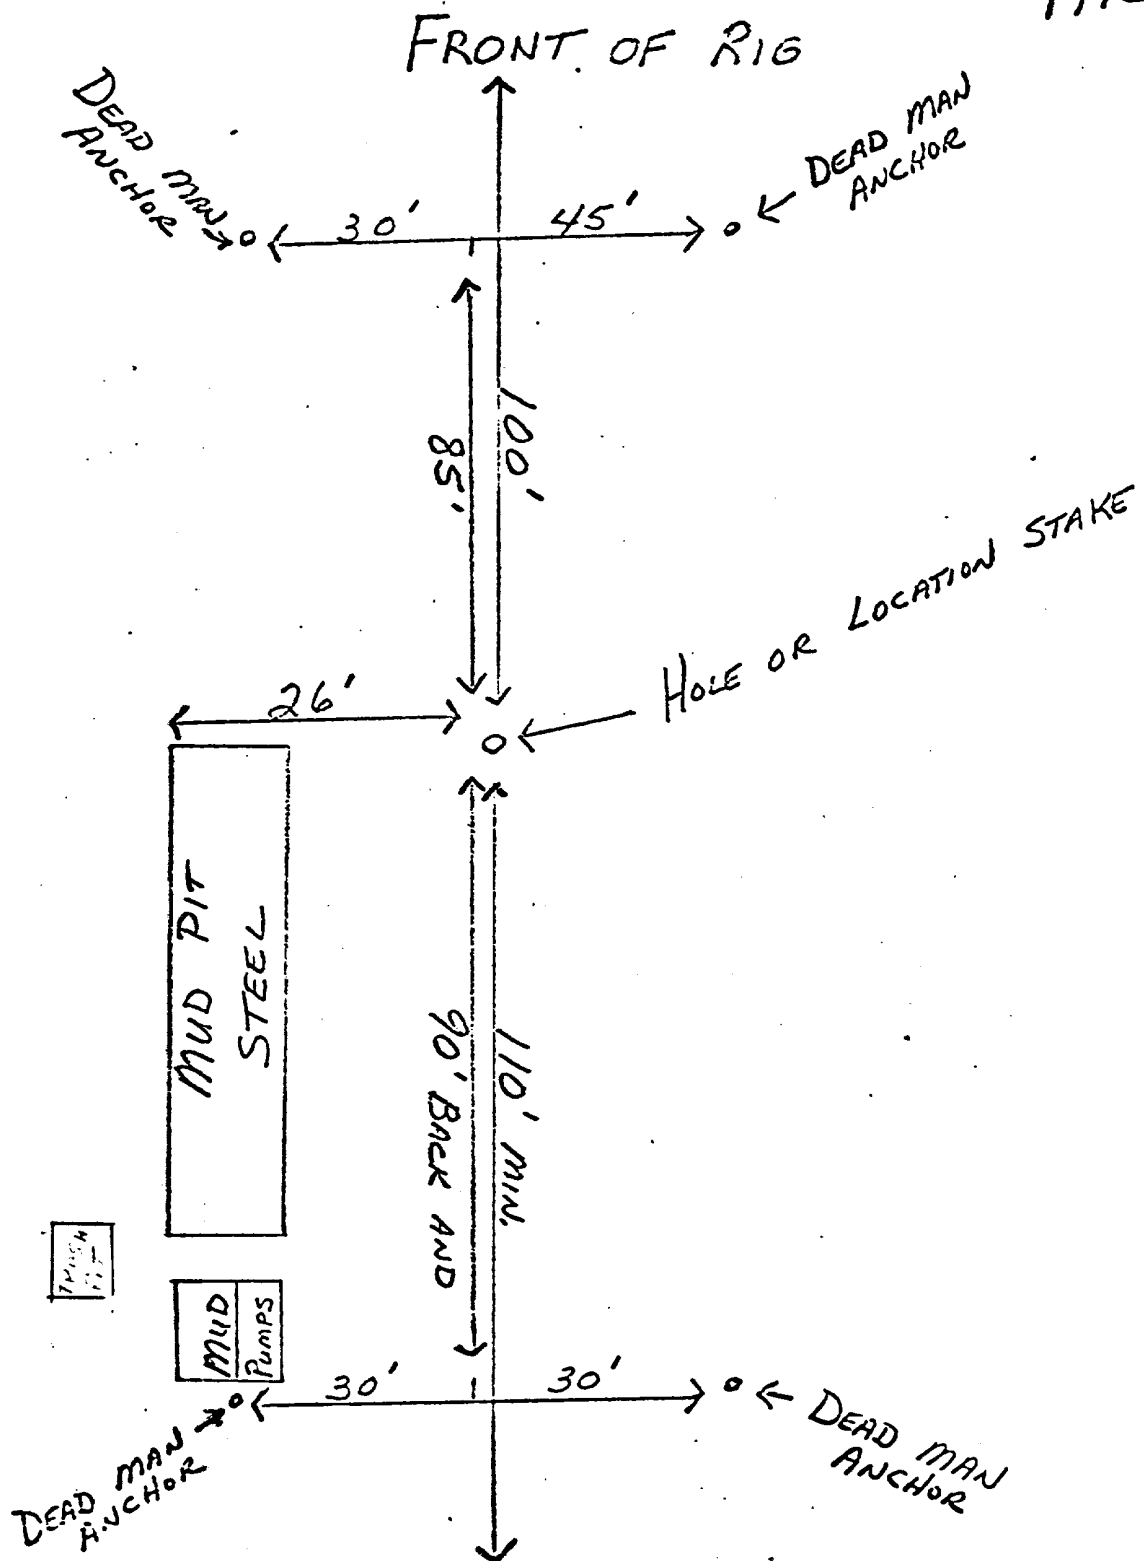 FRONT OF RIG
DEAD MAN
ANCHOR
DEAD MAN
ANCHOR
30'
45'
100'
85'
HOLE OR LOCATION STAKE
26'
MUD PIT
STEEL
110' MIN.
90' BACK AND
MUD
PUMPS
30'
30'
DEAD MAN
ANCHOR
DEAD MAN
ANCHOR